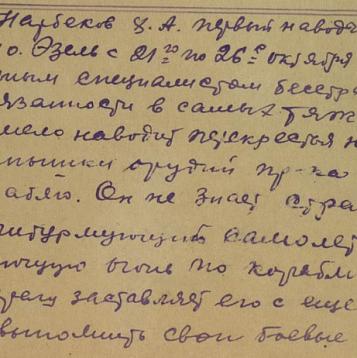 Нарбеков Х. А. первый наводч
о. Эзель с 21го по 26е октября
ным специалистом бесстра
язанности в самых тяж
мело наводит перекрестья н
пышки орудий пр-ка
аблю. Он не знает стра
штурмующий самолет
ющую огонь по корабл
регу заставляет его с еще
выполнить свои боевые